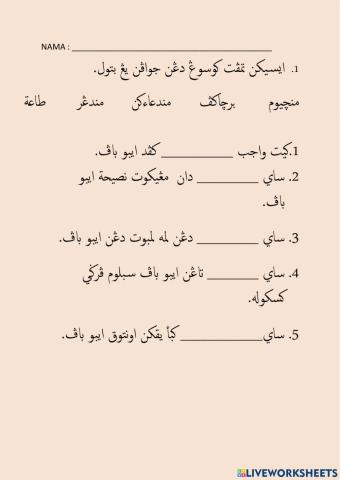 NAMA : ___________________________________
1. ايسيکن تمڤت کوسوڠ دڠن جواڤن يڠ بتول.
منچيوم برچاکڤ مندعاءکن مندڠر طاعة
1.کيت واجب __________ کڤد ايبو باڤ.
2. ساي _________ دان مڠيکوت نصيحة ايبو
باڤ.
3. ساي _________ دڠن لمه لمبوت دڠن ايبو باڤ.
4. ساي ________ تاڠن ايبو باڤ سبلوم ڤرݢي
کسکوله.
5. ساي____________ کبأيقکن اونتوق ايبو باڤ.
LIVEWORKSHEETS